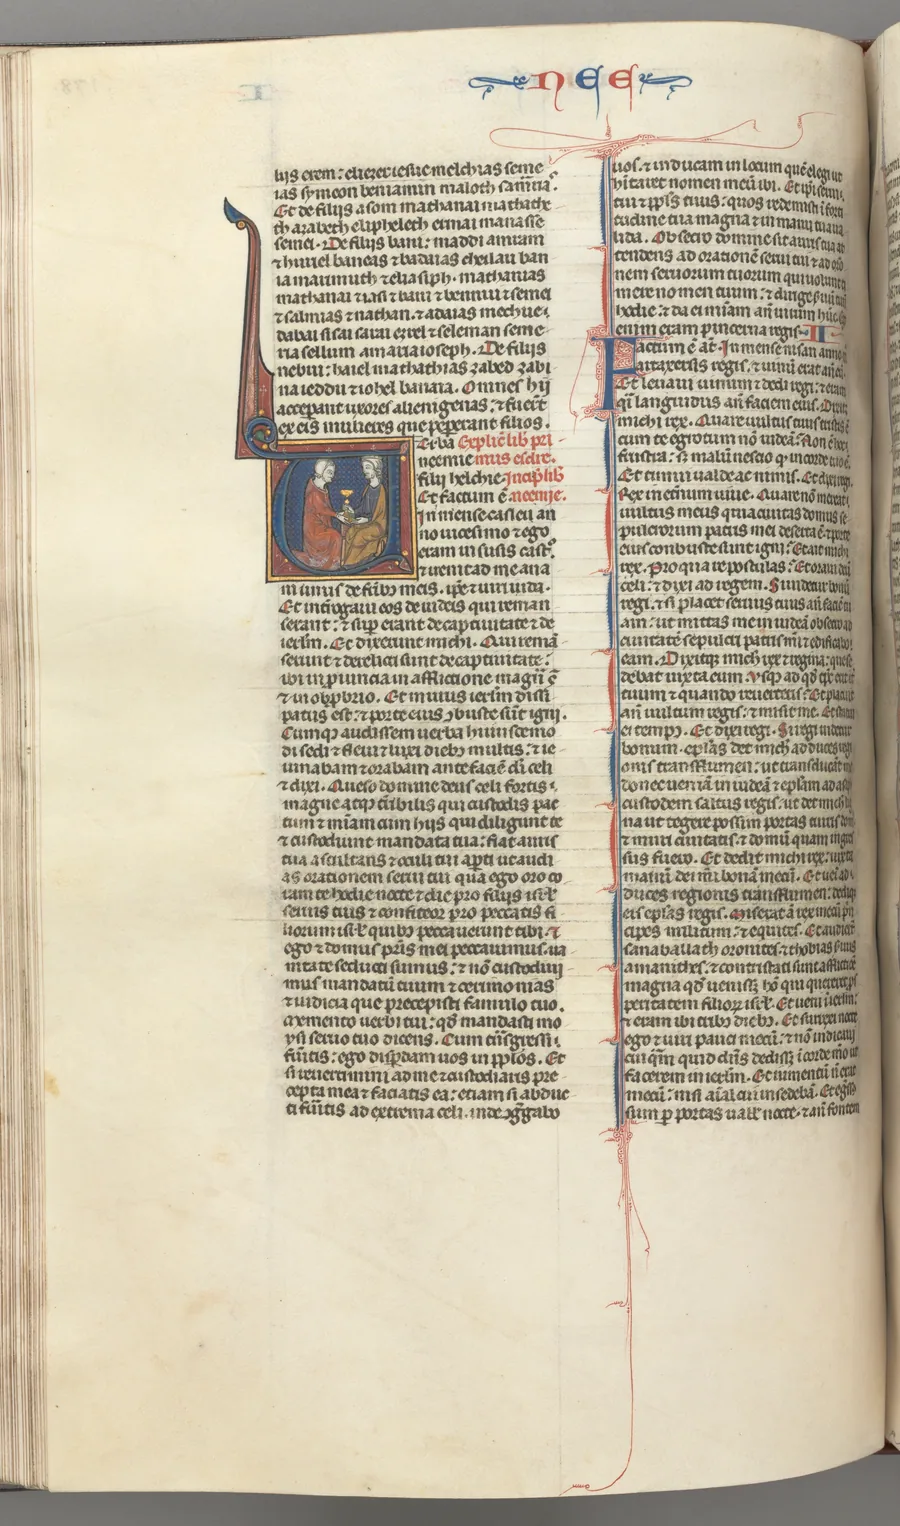 NEE
hijs erem: eliezer iesue melchias seme
ias symeon beniamin maloth samaria.
Et de filijs asom mathanai mathathe
th arabeth eliphelech ermai manasse
semei. De filijs bani: maddi amram
⁊ huiel baneas ⁊ badaias cheilau ban
ia marimuth ⁊ eliasiph. mathanias
mathanai ⁊ iasi ⁊ bani ⁊ bennui ⁊ semei
⁊ salmias ⁊ nathan. ⁊ adaias mechue
dabai sisai sarai ezrel ⁊ seleman seme
ria sellum amaria ioseph. De filijs
nebui: haiel mathathias zabed zabi
na ieddu ⁊ iohel banaia. Omnes hij
acceperant uxores alienigenas: ⁊ fuert̄
ex eis mulieres que pepererant filios.
Explic̄ lib pri
neemie mus esdre.
filij helchie. Incip̄ lib
Et factum ē. neemie.
in mense casleu an
no uicesimo ⁊ ego
eram in susis cast̄
⁊ uenit ad me ana
ni unus de fr̄ib; meis. ip̄e ⁊ uiri iuda.
Et int̄rogaui eos de iudeis qui reman
serant: ⁊ sup̄ erant de captiuitate ⁊ de
ierl̄m. Et dixerunt michi. Qui remā
serunt ⁊ derelicti sunt de captiuitate:
ibi in prouincia in afflictione magn̄ ē
⁊ in obp̄brio. Et murus ierl̄m dissi
patus est: ⁊ porte eius ꝯbuste sūt igni.
Cumq; audissem uerba huiuscemo
di sedi ⁊ fleui ⁊ luxi dieb; multis: ⁊ ie
iunabam ⁊ orabam ante faciē di celi
⁊ dixi. Queso domine deus celi fortis:
magne atq; tr̄ibilis qui custodis pac
tum ⁊ mīam cum hijs qui diligunt te
⁊ custodiunt mandata tua: fiat auris
tua ascultans ⁊ oculi tui ap̄ti ut audi
as orationem serui tui quā ego oro co
ram te hodie nocte ⁊ die pro filijs isrl̄
seruis tuis ⁊ confiteor pro peccatis fi
liorum isrl̄ quib; peccauerunt tibi. ⁊
ego ⁊ domus pr̄is mei peccauimus. ua
nitate seducti sumus: ⁊ nō custodiui
mus mandatū tuum ⁊ cerimonias
⁊ iudicia que precepisti famulo tuo.
Memento uerbi tui: qd̄ mandasti mo
ysi seruo tuo dicens. Cum tn̄sgressi
fūitis: ego disp̄dam uos in pp̄los. Et
si reuertimini ad me ⁊ custodiatis pre
cepta mea ⁊ faciatis ea: etiam si abduc
ti fūitis ad extrema celi. inde ꝯg̃gabo
uos. ⁊ inducam in locum quē elegi ut
hītaret nomen meū ibi. Et ip̄i serui
tui ⁊ ip̄ls tuus: quos redemisti ī forti
tudine tua magna ⁊ in manu tua ua
lida. Obsecro domine sit auris tua at
tendens ad orationē serui tui ⁊ ad orō
nem seruorum tuorum qui uolunt ti
mere nomen tuum: ⁊ dirige seruū tuū
hodie: ⁊ da ei mīam añ uirum hūc. Ego
enim eram pincerna regis. II
Factum ē āt. In mense nisan anno
artaxersis regis. ⁊ uinū erat añ eū.
Et leuaui uinum ⁊ dedi regi: ⁊ eram
q̄i languidus añ faciem eius. Dixitq;
michi rex. Quare uultus tuus tristis ē
cum te egrotum nō uideā: Nō ē hoc
frustra: s; malū nescio q̄ in corde tuo ē.
Et timui ualde ac nimis. Et dixi regi.
Rex in etnum uiue. Quare nō mereat̄
uultus meus quia ciuitas domus se
pulcrorum patris mei deserta ē: ⁊ porte
eius conbuste sunt igni: Et ait michi
rex. Pro qua re postulas: Et oraui deū
celi: ⁊ dixi ad regem. Si uidetur bonū
regi. ⁊ si placet seruus tuus añ faciem tu
am: ut mittas me in iudeā obsecro ad
ciuitatē sepulcri patris mī ⁊ edificabo
eam. Dixitq; mich rex ⁊ regina: que se
debat iuxta eum: Vsq; ad qd̄ tp̄s erit it
tuum ⁊ quando reuerteris: Et placuit
añ uultum regis: ⁊ misit me. Et statui
ei temp;. Et dixi regi. Si regi uidetur
bonum. epl̄as det mich ad duces regi
onis transflumen: ut transducāt me
donec ueniā in iudeā ⁊ epl̄am ad asaph
custodem saltus regis: ut det mich lig
na ut tegere possim portas turris dom̄
⁊ muri ciuitatis. ⁊ domū quam ingres
sus fuero. Et dedit michi rex: iuxta
manū dei mī bonā mecū. Et ueni ad
duces regionis transflumen: dediq;
eis epl̄as regis. Miserat ā rex mecū prin
cipes militum: ⁊ equites. Et audiert̄
sanaballath oronites. ⁊ thobias seruus
amanithes. ⁊ contristati sunt afflictiōe
magna qd̄ uenissz hō qui quereret p̄s
peritatem filioꝝ isrl̄. Et ueni ierl̄m:
⁊ eram ibi trib; dieb;. Et surrexi nocte
ego ⁊ uiri pauci mecū: ⁊ nō indicaui
cuiq̄m quid d̄ns dedissz ī corde mō ut
facerem in ierl̄m. Et iumentū n̄ erat
mecū: nisi aīal cui insedebā. Et egres
sum p̄ portas uall̄ nocte. ⁊ añ fontem